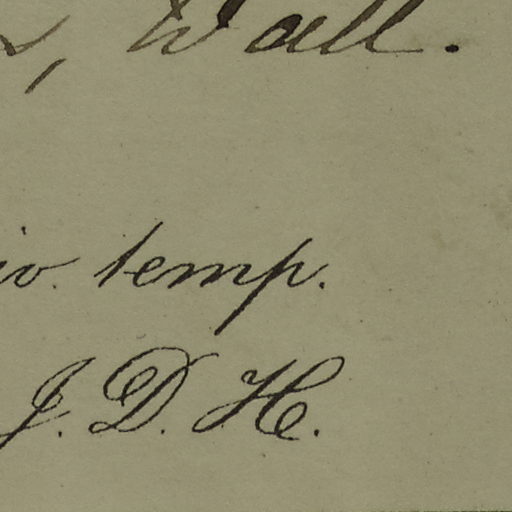 , Wall.
temp.
J. D. H.